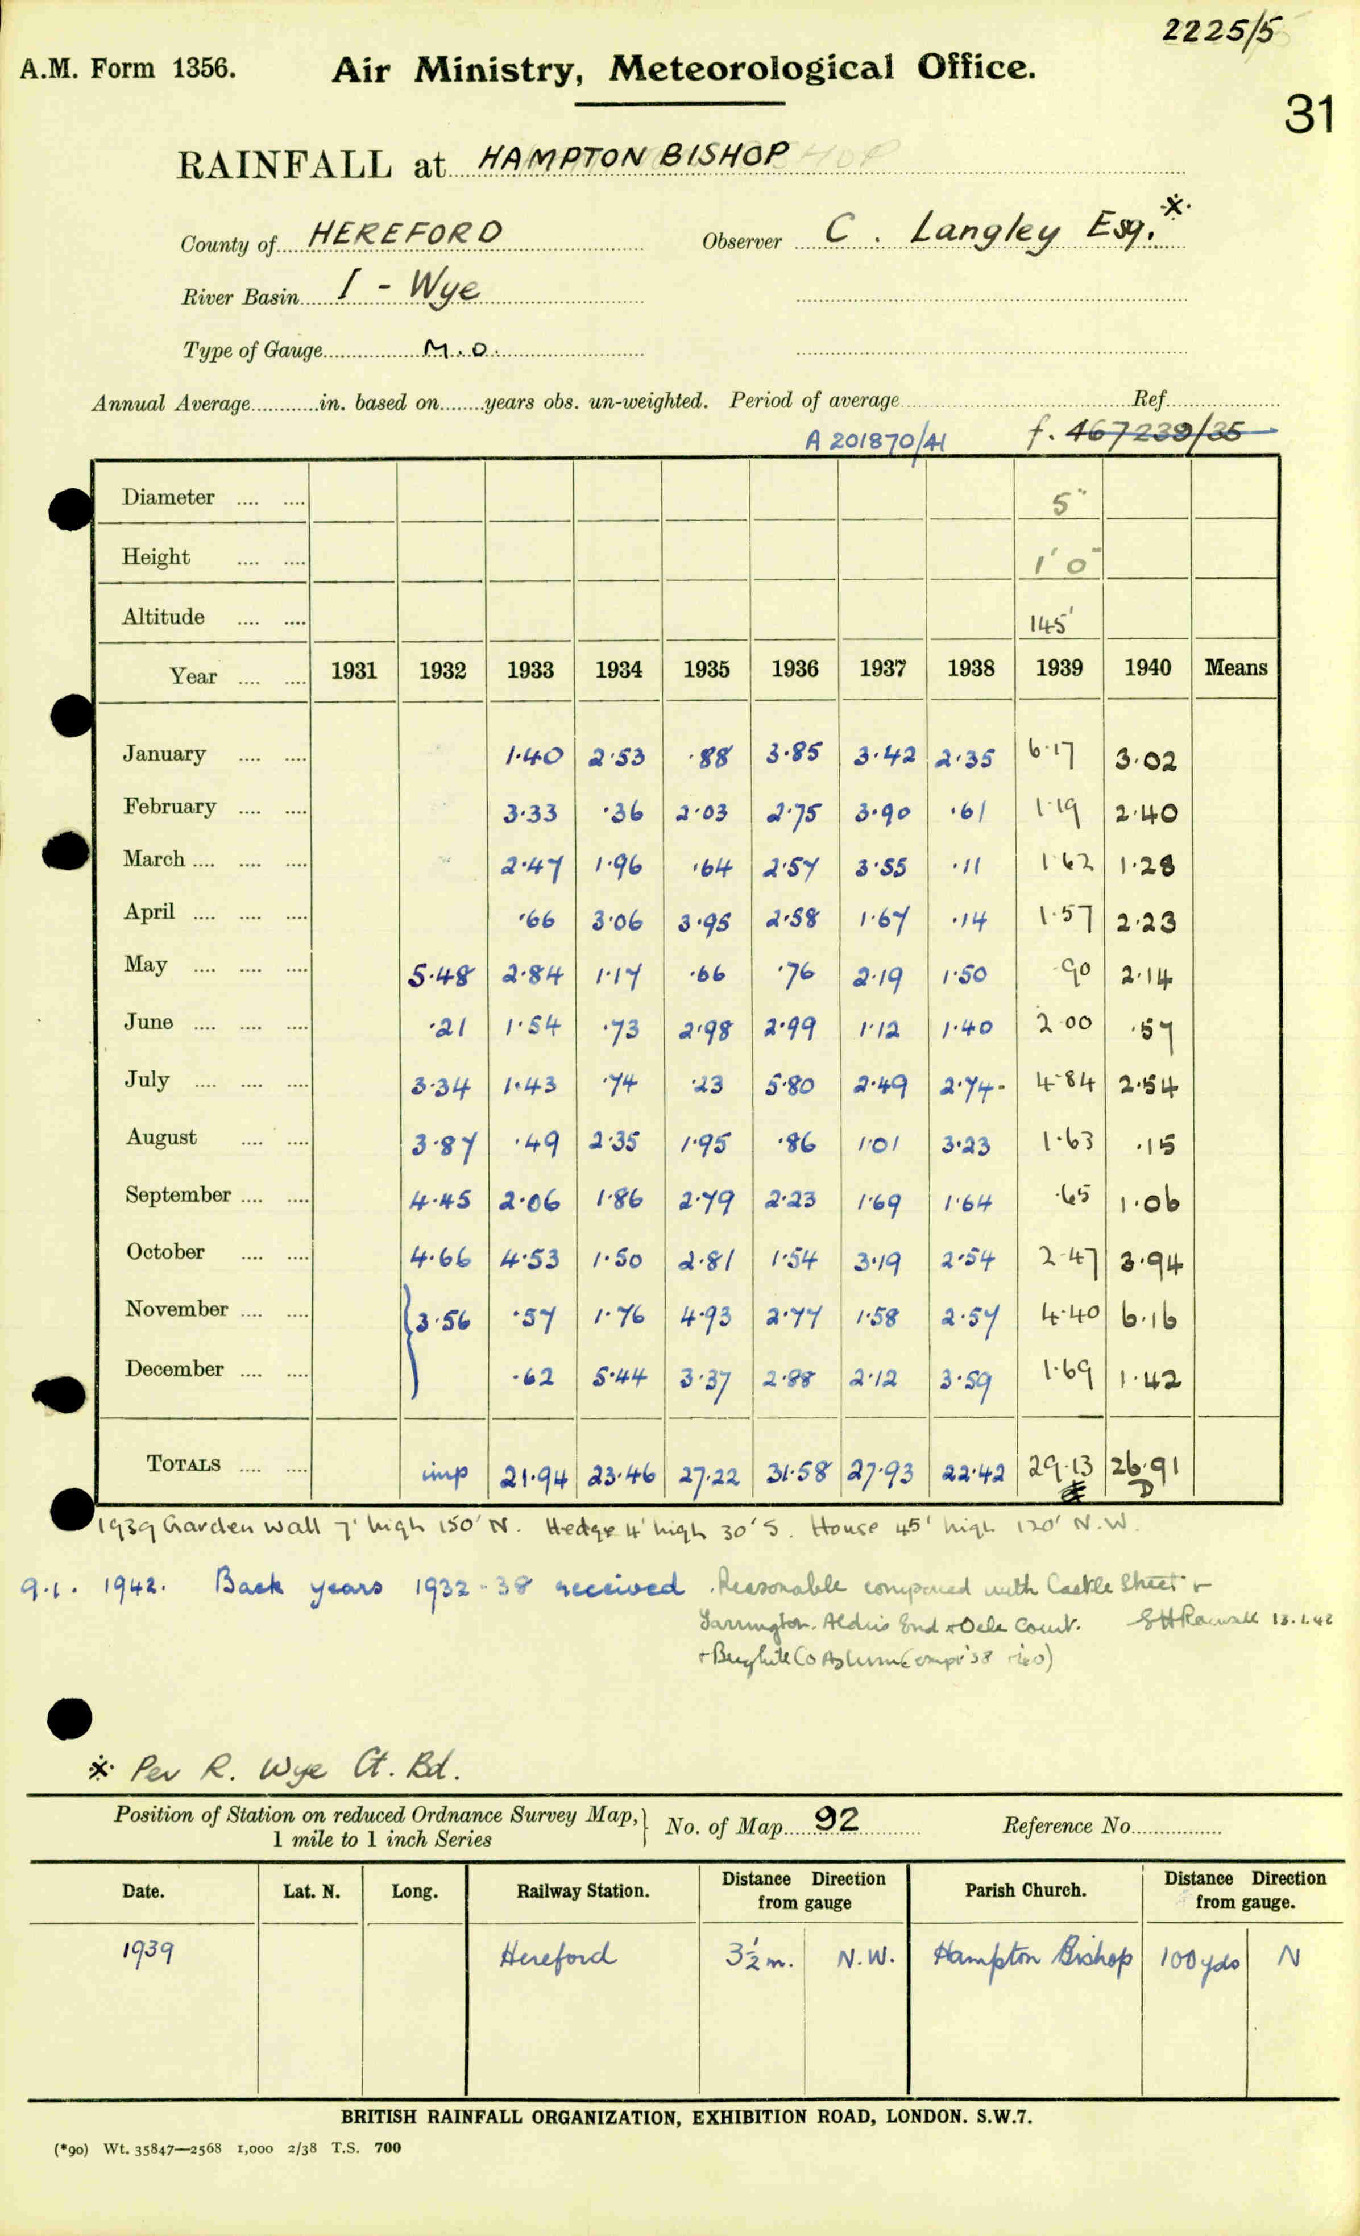 2225/5
A.M. Form 1356. Air Ministry, Meteorological Office.
31
RAINFALL at HAMPTON BISHOP
County of HEREFORD Observer C. Langley Esq. *
River Basin I - Wye
Type of Gauge M.O.
Annual Average in. based on years obs. un-weighted. Period of average Ref
A 201870/41 f. 467239/35
Diameter 5"
Height 1' 0"
Altitude 145'
Year 1931 1932 1933 1934 1935 1936 1937 1938 1939 1940 Means
January 1.40 2.53 .88 3.85 3.42 2.35 6.17 3.02
February 3.33 .36 2.03 2.75 3.90 .61 1.19 2.40
March 2.47 1.96 .64 2.57 3.55 .11 1.62 1.28
April .66 3.06 3.95 2.58 1.67 .14 1.57 2.23
May 5.48 2.84 1.17 .66 .76 2.19 1.50 .90 2.14
June .21 1.54 .73 2.98 2.99 1.12 1.40 2.00 .57
July 3.34 1.43 .74 .23 5.80 2.49 2.74 4.84 2.54
August 3.87 .49 2.35 1.95 .86 1.01 3.23 1.63 .15
September 4.45 2.06 1.86 2.79 2.23 1.69 1.64 .65 1.06
October 4.66 4.53 1.50 2.81 1.54 3.19 2.54 2.47 3.94
November 3.56 .57 1.76 4.93 2.77 1.58 2.57 4.40 6.16
December .62 5.44 3.37 2.88 2.12 3.59 1.69 1.42
TOTALS imp 21.94 23.46 27.22 31.58 27.93 22.42 29.13 26.91
D
1939 Garden Wall 7' high 150' N. Hedge 4' high 30' S. House 45' high 120' N.W.
9.1.1942. Back years 1932-38 received. Reasonable compared with Castle Street +
Tarrington. Aldus End + Dele Court. 13.1.42
* Per R. Wye Ct. Bd.
Position of Station on reduced Ordnance Survey Map, No. of Map 92 Reference No
1 mile to 1 inch Series
Date. Lat. N. Long. Railway Station. Distance Direction from gauge Parish Church. Distance Direction from gauge.
1939 Hereford 3½ m. N.W. Hampton Bishop 100 yds N
BRITISH RAINFALL ORGANIZATION, EXHIBITION ROAD, LONDON. S.W.7.
(*90) Wt. 35847—2568 1,000 2/38 T.S. 700